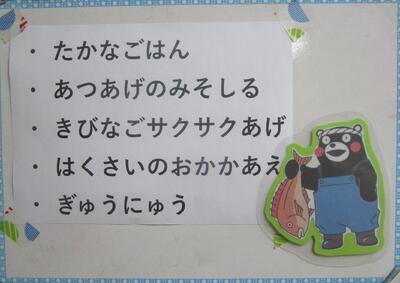 ・ たかなごはん
・ あつあげのみそしる
・ きびなごサクサクあげ
・ はくさいのおかかあえ
・ ぎゅうにゅう